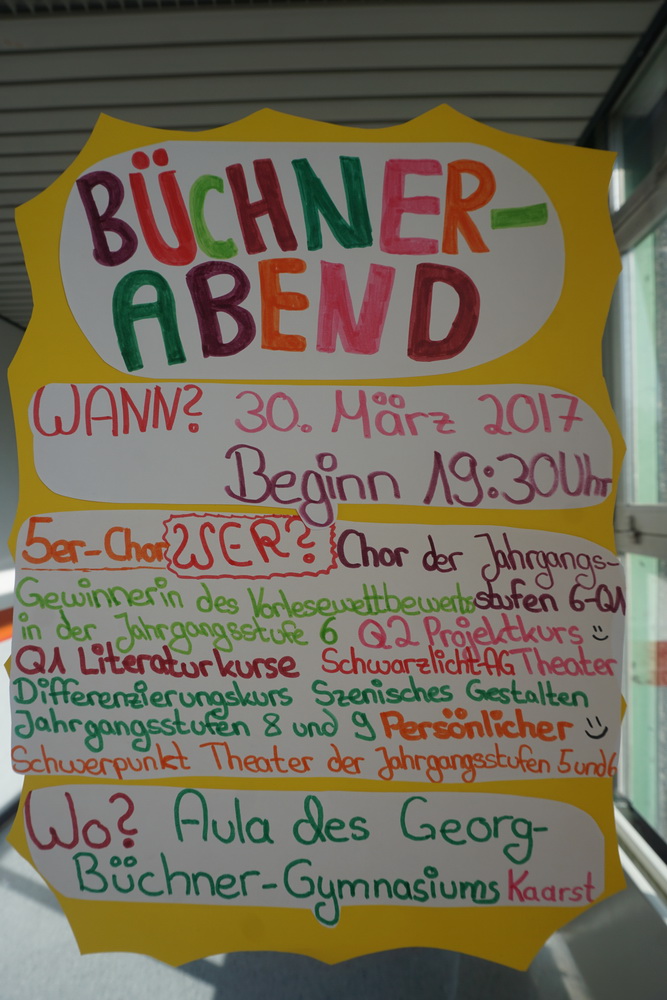 BÜCHNER-
ABEND
WANN? 30. März 2017
Beginn 19:30Uhr
5er-Chor WER? Chor der Jahrgangs-
stufen 6-Q1
Gewinnerin des Vorlesewettbewerbs
in der Jahrgangsstufe 6 Q2 Projektkurs
Theater
Q1 Literaturkurse Schwarzlicht-AG
Differenzierungskurs Szenisches Gestalten
Jahrgangsstufen 8 und 9 Persönlicher
Schwerpunkt Theater der Jahrgangsstufen 5und6
Wo? Aula des Georg-
Büchner-Gymnasiums Kaarst